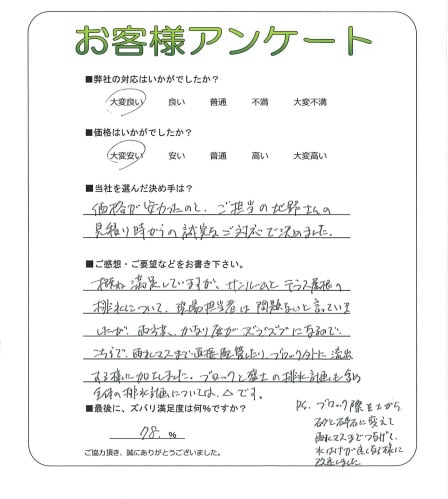 お客様アンケート
■弊社の対応はいかがでしたか？
大変良い 良い 普通 不満 大変不満
■価格はいかがでしたか？
大変安い 安い 普通 高い 大変高い
■当社を選んだ決め手は？
価格が安かったのと、ご担当の地野さんの
見積り時からの誠実なご対応で決めました。
■ご感想・ご要望などをお書き下さい。
概ね満足していますが、サンルームとテラス屋根の
排水について、現場担当者は問題ないと言っていま
したが、雨方式、かなり庭がズブズブになるので、
こちらで、雨水マスまで直接配管したり、ブロック外に流出
する様に加工しました。ブロックと盛土の排水計画も含め
全体の排水計画については、△です。
■最後に、ズバリ満足度は何%ですか？
78. %
ご協力頂き、誠にありがとうございました。
P.S. ブロック際を土から
砂と砕石に変えて
雨水マスまでつなげて、
水はけが良くなる様に
改良しました。